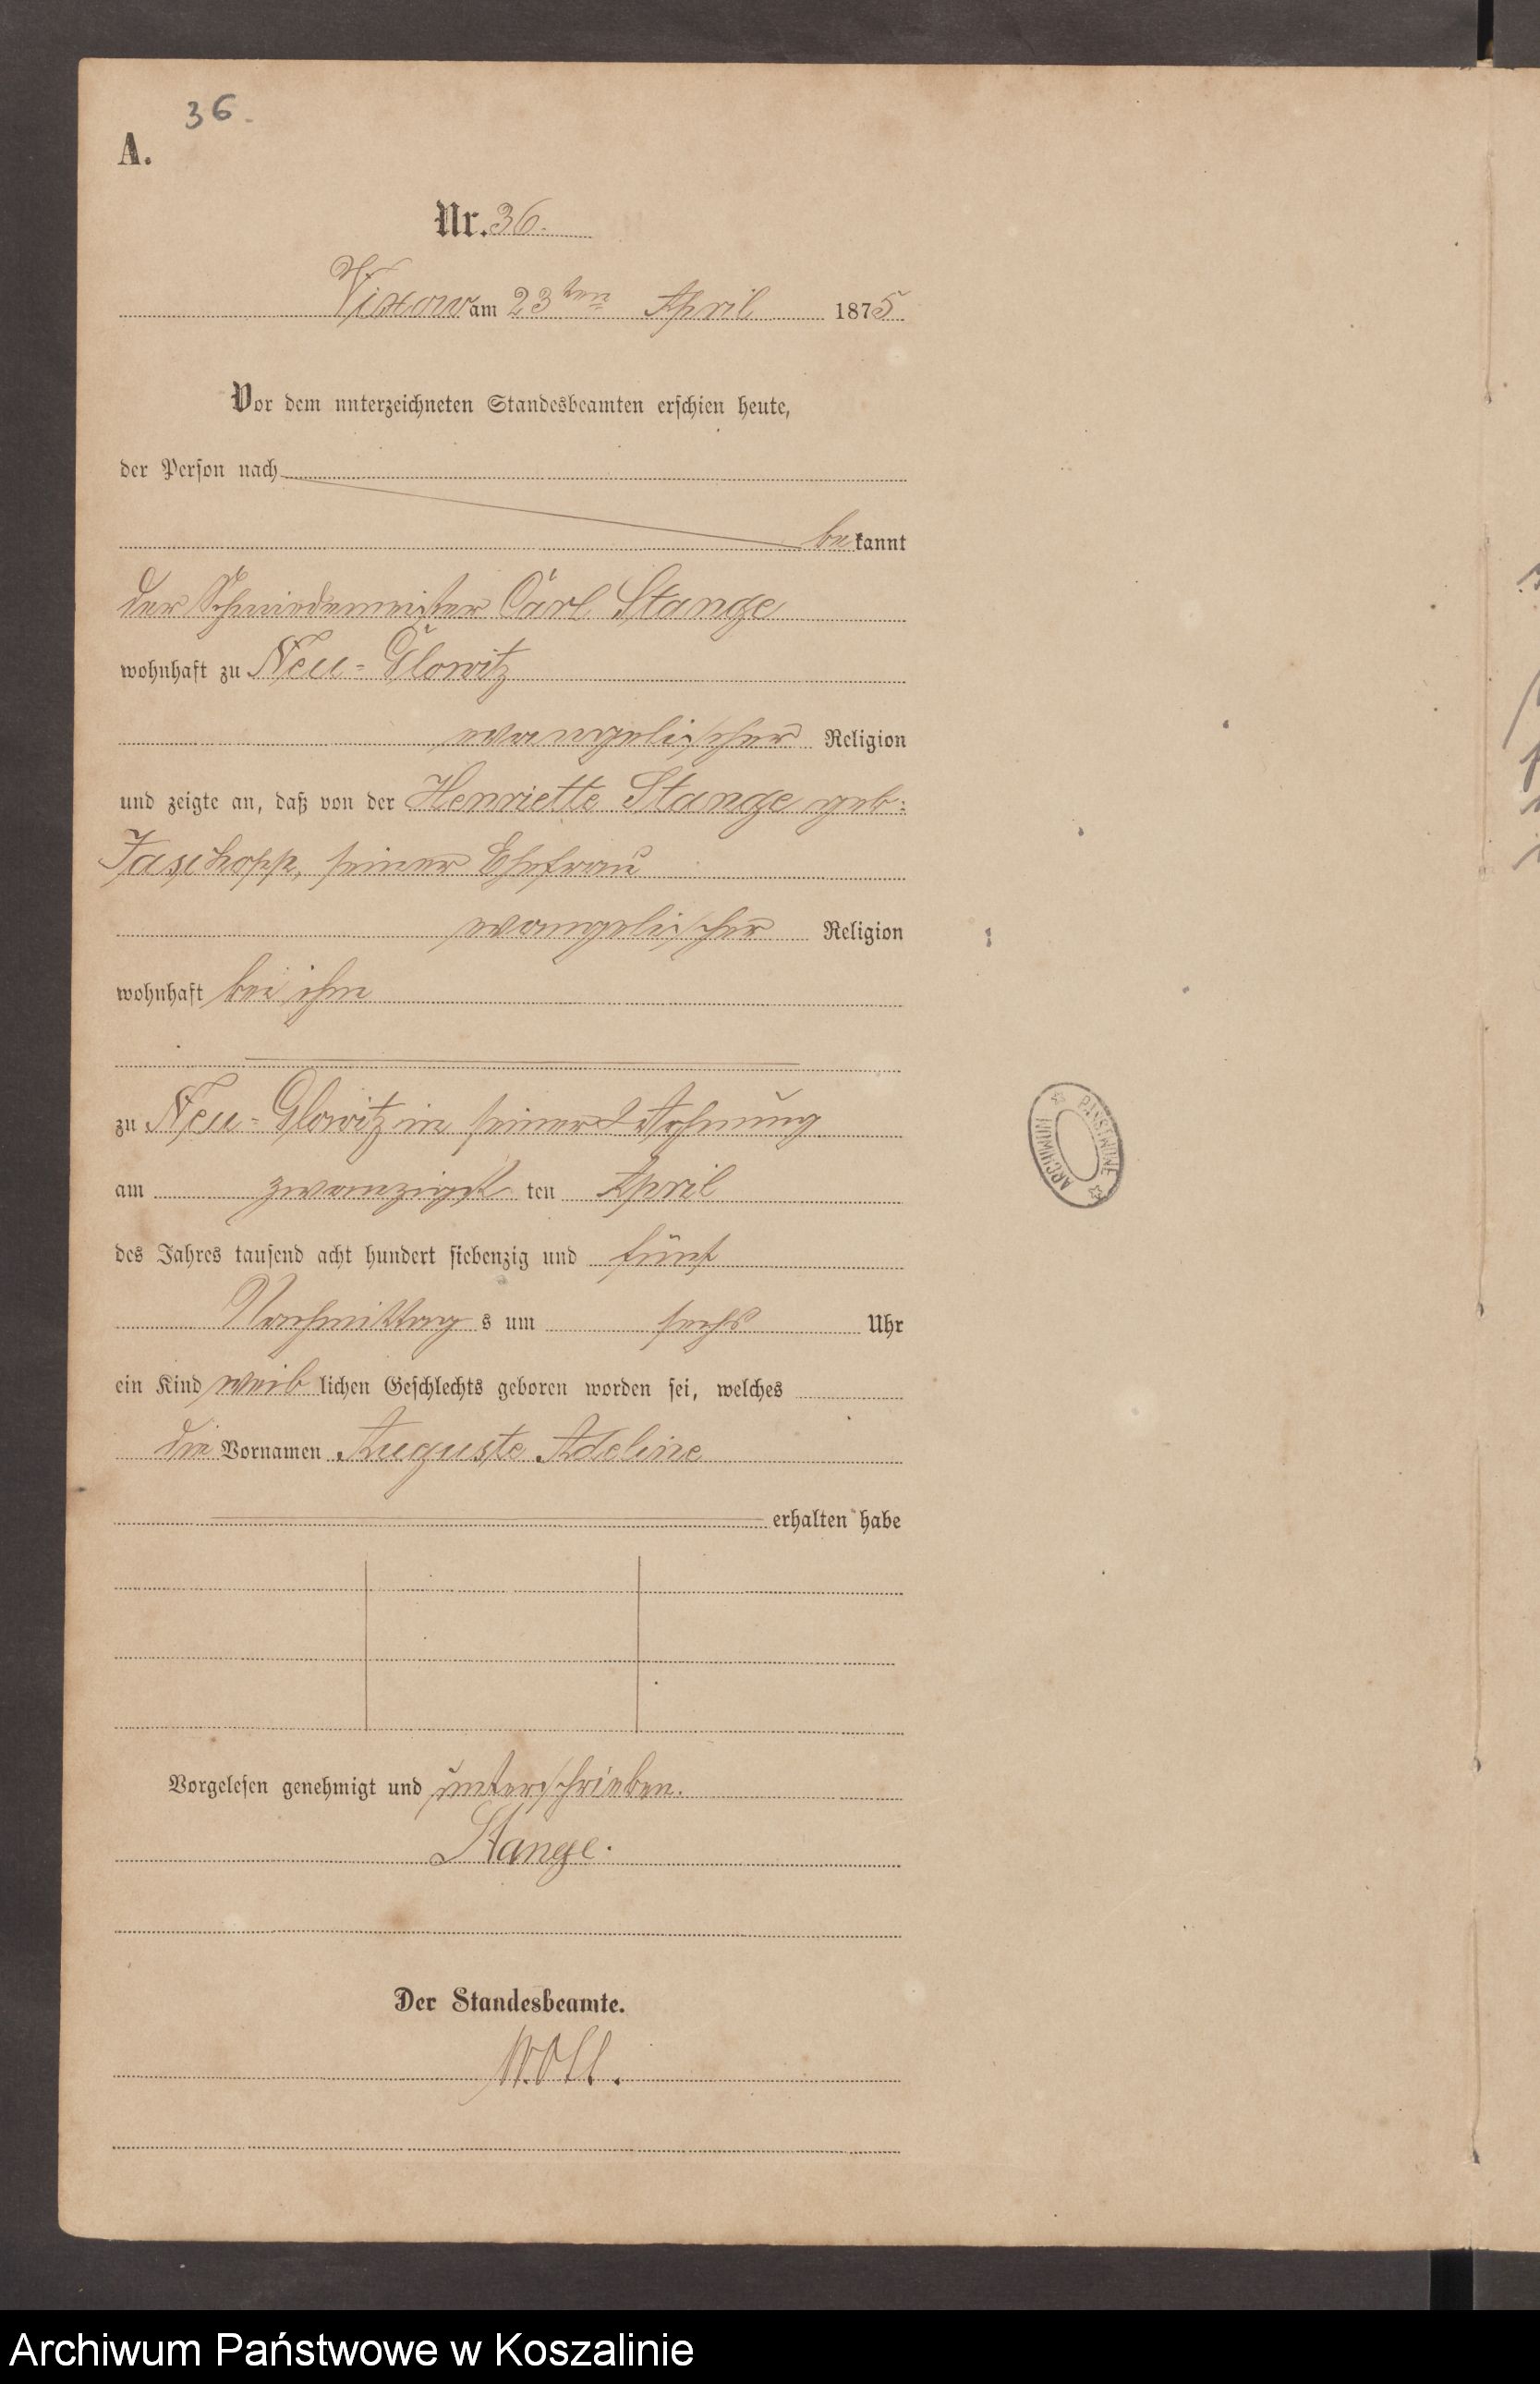 36.
A.
Nr. 36.
Vixow am 23ten April 1875
Vor dem unterzeichneten Standesbeamten erschien heute,
der Person nach
bekannt
der Schmiedemeister Carl Stange
wohnhaft zu Neu-Glowitz
evangelischer Religion
und zeigte an, daß von der Henriette Stange geb:
Jaschopp, seiner Ehefrau
evangelischer Religion
wohnhaft bei ihm
zu Neu-Glowitz in seiner Wohnung
am zwanzigsten April
des Jahres tausend acht hundert siebenzig und fünf
Nachmittags um sechs Uhr
ein Kind weiblichen Geschlechts geboren worden sei, welches
die Vornamen Auguste Adeline
erhalten habe
Vorgelesen genehmigt und unterschrieben.
Stange.
Der Standesbeamte.
ARCHIWUM PAŃSTWOWE
Archiwum Państwowe w Koszalinie